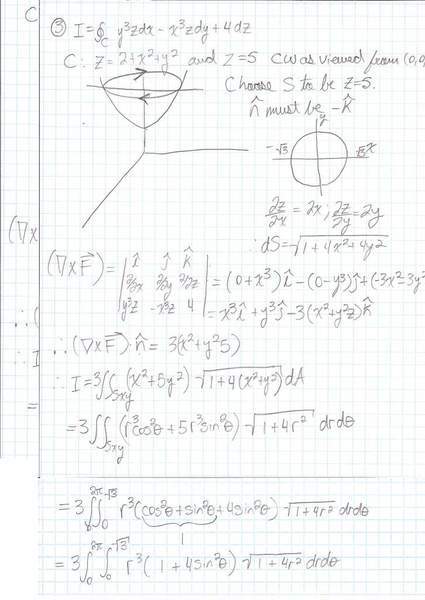 C
③ I = ∮_C y³zdx - x³zdy + 4dz
C: z = 2 + x² + y² and z = 5 CW as viewed from (0,0,
Choose S to be z = 5.
n̂ must be -k̂
y
-√3 √3 x
∂z/∂x = 2x ; ∂z/∂y = 2y
∴ dS = √(1 + 4x² + 4y²)
(∇x
(∇xF⃗) = | î ĵ k̂ |
| ∂/∂x ∂/∂y ∂/∂z | = (0 + x³)î - (0 - y³)ĵ + (-3x² - 3y²
| y³z -x³z 4 | = x³î + y³ĵ - 3(x² + y²z)k̂
∴ (
∴ (∇xF⃗)·n̂ = 3(x² + y²5)
∴ I
∴ I = 3∬_Sxy (x² + 5y²) √(1 + 4(x² + y²)) dA
=
= 3∬_Sxy (r³cos²θ + 5r³sin²θ) √(1 + 4r²) drdθ
= 3∫₀^2π ∫₀^√3 r³(cos²θ + sin²θ + 4sin²θ) √(1 + 4r²) drdθ
1
= 3∫₀^2π ∫₀^√3 r³(1 + 4sin²θ) √(1 + 4r²) drdθ